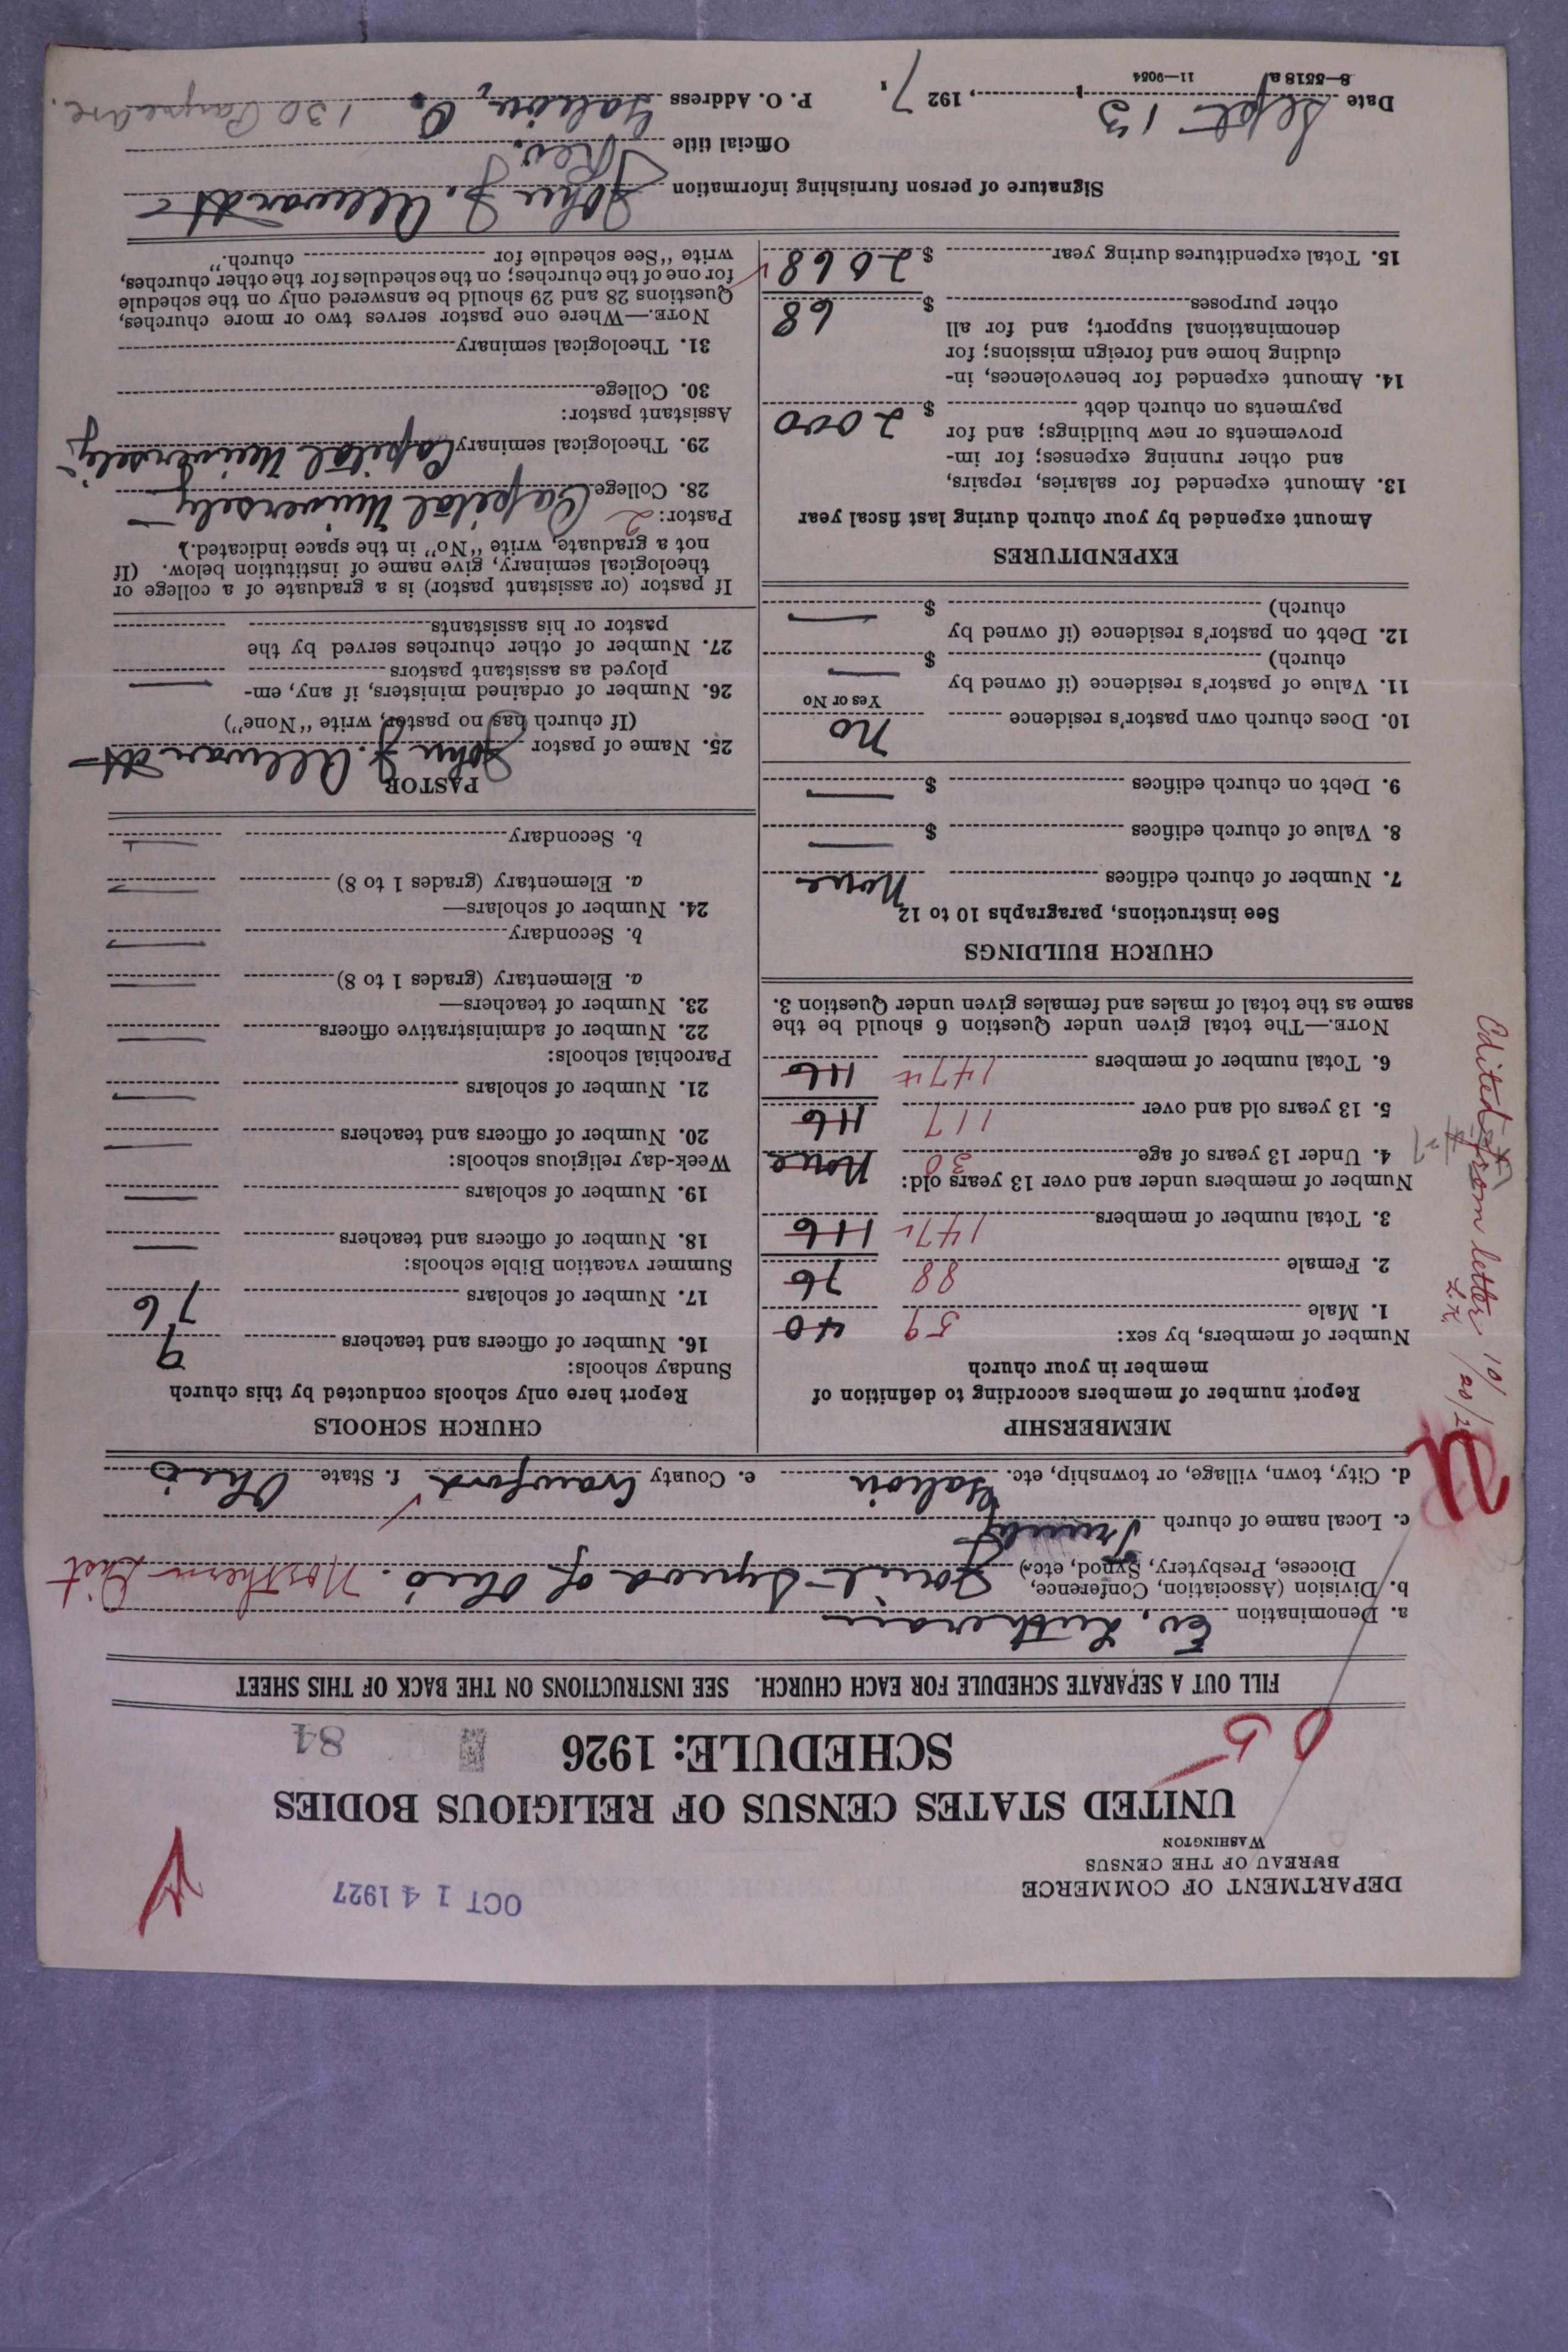 DEPARTMENT OF COMMERCE
BUREAU OF THE CENSUS
WASHINGTON
OCT 14 1927
UNITED STATES CENSUS OF RELIGIOUS BODIES
SCHEDULE: 1926
84
FILL OUT A SEPARATE SCHEDULE FOR EACH CHURCH. SEE INSTRUCTIONS ON THE BACK OF THIS SHEET
a. Denomination Ev. Lutheran
b. Division (Association, Conference, Diocese, Presbytery, Synod, etc.) Joint Synod of Ohio. Northern Dist
c. Local name of church
d. City, town, village, or township, etc. Galion e. County Crawford f. State Ohio
MEMBERSHIP
Report number of members according to definition of
member in your church
Number of members, by sex:
1. Male 59 40
2. Female 88 76
3. Total number of members 147 116
Number of members under and over 13 years old:
4. Under 13 years of age 30 None
5. 13 years old and over 117 116
6. Total number of members 147 116
NOTE.—The total given under Question 6 should be the
same as the total of males and females given under Question 3.
CHURCH BUILDINGS
See instructions, paragraphs 10 to 12
7. Number of church edifices None
8. Value of church edifices $ —
9. Debt on church edifices $ —
10. Does church own pastor's residence No
Yes or No
11. Value of pastor's residence (if owned by
church) $ —
12. Debt on pastor's residence (if owned by
church) $ —
EXPENDITURES
Amount expended by your church during last fiscal year
13. Amount expended for salaries, repairs,
and other running expenses; for im-
provements or new buildings; and for
payments on church debt $ 2000
14. Amount expended for benevolences, in-
cluding home and foreign missions; for
denominational support; and for all
other purposes $ 68
15. Total expenditures during year $ 2068
CHURCH SCHOOLS
Report here only schools conducted by this church
Sunday schools:
16. Number of officers and teachers 9
17. Number of scholars 76
Summer vacation Bible schools:
18. Number of officers and teachers —
19. Number of scholars —
Week-day religious schools:
20. Number of officers and teachers —
21. Number of scholars —
Parochial schools:
22. Number of administrative officers —
23. Number of teachers—
a. Elementary (grades 1 to 8) —
b. Secondary —
24. Number of scholars—
a. Elementary (grades 1 to 8) —
b. Secondary —
PASTOR
25. Name of pastor John J. Allwardt
(If church has no pastor, write "None")
26. Number of ordained ministers, if any, em-
ployed as assistant pastors —
27. Number of other churches served by the
pastor or his assistants
If pastor (or assistant pastor) is a graduate of a college or
theological seminary, give name of institution below. (If
not a graduate, write "No" in the space indicated.)
Pastor: 2
28. College Capital University
29. Theological seminary Capital University
Assistant pastor:
30. College
31. Theological seminary
NOTE.—Where one pastor serves two or more churches,
Questions 28 and 29 should be answered only on the schedule
for one of the churches; on the schedules for the other churches,
write "See schedule for church."
Signature of person furnishing information John J. Allwardt
Official title Rev.
Date Sept 13, 1927. P. O. Address Galion, O.
8—5518a 11—9054
Edited from letter